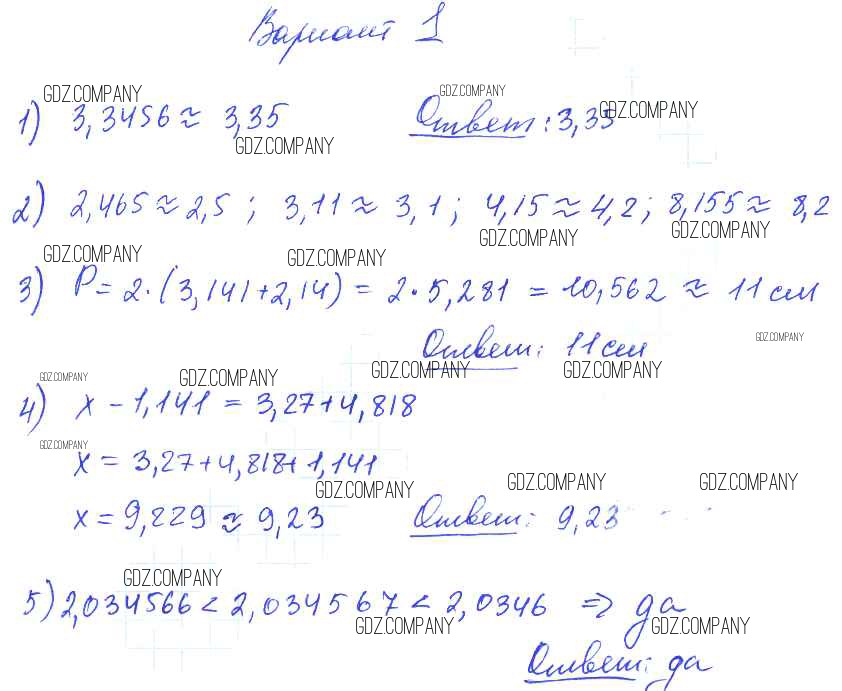 Вариант 1
GDZ.COMPANY GDZ.COMPANY
1) 3,3456 ≈ 3,35 Ответ: 3,35 GDZ.COMPANY
GDZ.COMPANY
2) 2,465 ≈ 2,5 ; 3,11 ≈ 3,1 ; 4,15 ≈ 4,2 ; 8,155 ≈ 8,2
GDZ.COMPANY GDZ.COMPANY
GDZ.COMPANY GDZ.COMPANY
3) P = 2·(3,141+2,14) = 2·5,281 = 10,562 ≈ 11 см
Ответ: 11 см GDZ.COMPANY
GDZ.COMPANY GDZ.COMPANY GDZ.COMPANY GDZ.COMPANY
4) x - 1,141 = 3,27+4,818
GDZ.COMPANY
x = 3,27+4,818+1,141
GDZ.COMPANY GDZ.COMPANY GDZ.COMPANY
x = 9,229 ≈ 9,23 Ответ: 9,23
GDZ.COMPANY
5) 2,034566 < 2,034567 < 2,0346 => да
GDZ.COMPANY GDZ.COMPANY
Ответ: да